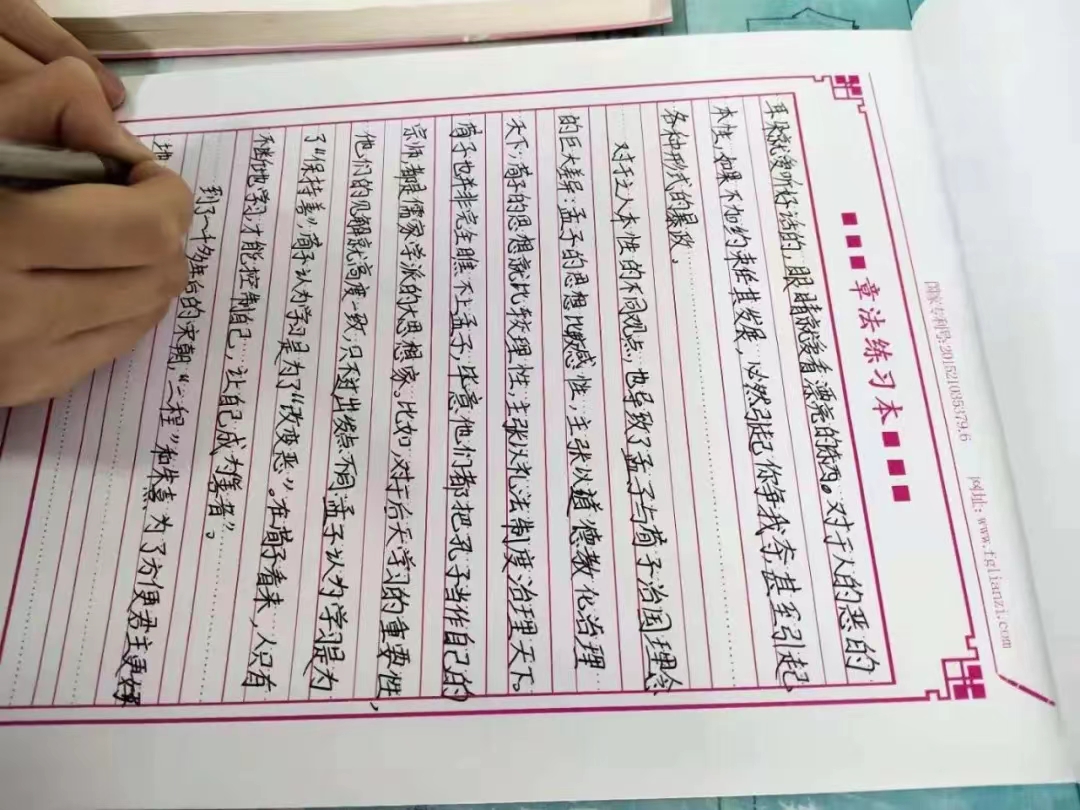 国家专利号:201521035379.6 网址:www.fglianzi.com
章法练习本
耳朵就爱听好话的,眼睛就爱看漂亮的东西。对于人的恶的
本性,如果不加约束任其发展,必然引起你争我夺,甚至引起
各种形式的暴政。
对于之人本性的不同观点,也导致了孟子与荀子治国理念
的巨大差异:孟子的思想比较感性,主张以道德教化治理
天下;荀子的思想就比较理性,主张以礼法制度治理天下。
荀子也并非完全瞧不上孟子,毕竟他们都把孔子当作自己的
宗师,都是儒家学派的大思想家。比如,对于后天学习的重要性,
他们的见解就高度一致,只不过出发点不同,孟子认为学习是为
了“保持善”,荀子认为学习是为了“改变恶”。在荀子看来,人只有
不断地学习才能控制自己,让自己成为“善者”。
到了一千多年后的宋朝,“二程”和朱熹为了方便君主更好
地